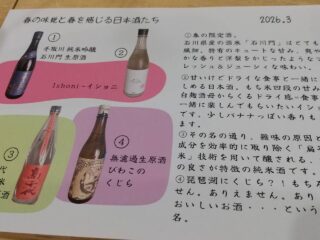 春の味覚と春を感じる日本酒たち
2026.3
①
手取川 純米吟醸
石川門 生原酒
②
Ishoni -イショニ
③
④
無濾過生原酒
びわこの
くじら
①春の限定酒。
石川県産の酒米「石川門」はとても
繊細。特有のキュートな甘み、爽や
かな香りと洋梨をかじったようなフ
レッシュ&ジューシな味わい。
②甘いけどドライな食事と一緒に
しめる日本酒。もち米四段の甘み
白麹酒母からくるドライ感…食事
一緒に楽しんでもらいたいイショ
です。少しバナナっぽい香りも
ます。
③その名の通り、雑味の原因と
成分を効率的に取り除く「扁平
米」技術を用いて醸される、
の良さが特徴の純米酒です。
④琵琶湖にくじら？！もちろ
せん。ありえません。ありえ
おいしいお酒・・・という
名。